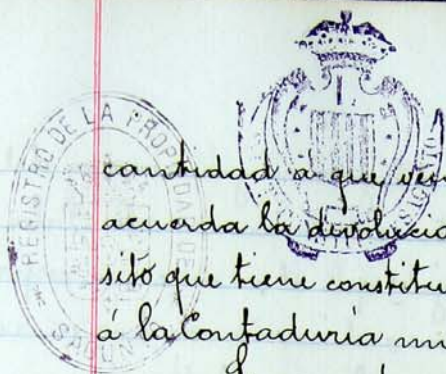 REGISTRO DE LA PROPIEDAD DE
cantidad a que
acuerda la devolució
sito que tiene constitu
á la Contaduria mu